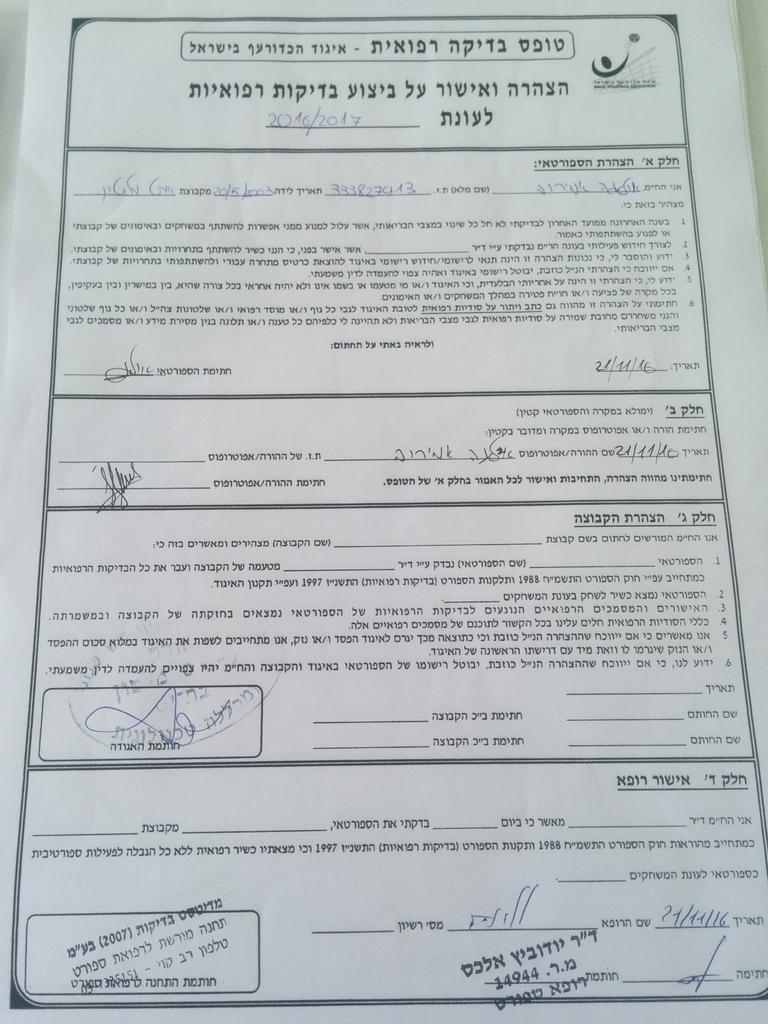 טופס בדיקה רפואית - איגוד הכדורעף בישראל
הצהרה ואישור על ביצוע בדיקות רפואיות
לעונת 2016/2017
חלק א' הצהרת הספורטאי:
אני הח"מ (שם מלא) ת.ז. 333827413 תאריך לידה 20/5/2003 מקבוצת
מצהיר בזאת כי:
1. בשנה האחרונה ממועד האחרון לבדיקתי לא חל כל שינוי במצבי הבריאותי, אשר עלול למנוע ממני אפשרות להשתתף במשחקים ובאימונים של קבוצתי
או לפגוע בהשתתפותי כאמור.
2. לצורך חידוש פעילותי בעונה הר"מ נבדקתי ע"י ד"ר אשר אישר בפני, כי הנני כשיר להשתתף בתחרויות ובאימונים של קבוצתי.
3. ידוע והוסבר לי, כי נכונות הצהרה זו הינה תנאי לרישומי/חידוש רישומי באיגוד להוצאת כרטיס מתחרה עבורי ולהשתתפותי בתחרויות של קבוצתי.
4. אם ייווכח כי הצהרתי הנ"ל כוזבת, יבוטל רישומי באיגוד ואהיה צפוי להעמדה לדין משמעתי.
5. ידוע לי, כי הצהרתי זו הינה על אחריותי הבלעדית, וכי האיגוד ו/או מי מטעמו או בשמו אינו ולא יהיה אחראי בכל צורה שהיא, בין במישרין ובין בעקיפין,
בכל מקרה של פציעה ו/או חו"ח פטירה במהלך המשחקים ו/או האימונים.
6. חתימתי על הצהרה זו מהווה גם כתב ויתור על סודיות רפואית לטובת האיגוד לגבי כל גוף ו/או מוסד רפואי ו/או שלטונות צה"ל ו/או כל גוף שלטוני
והנני משחררם מחובת שמירה על סודיות רפואית לגבי מצבי הבריאות ולא תהיינה לי כלפיהם כל טענה ו/או תלונה בגין מסירת מידע ו/או מסמכים לגבי
מצבי הבריאותי.
ולראיה באתי על החתום:
תאריך: 21/11/16 חתימת הספורטאי
חלק ב' (ימולא במקרה והספורטאי קטין)
חתימת הורה ו/או אפוטרופוס במקרה ומדובר בקטין:
תאריך 21/11/16 שם ההורה/אפוטרופוס ת.ז. של ההורה/אפוטרופוס
חתימתינו מהווה הצהרה, התחייבות ואישור לכל האמור בחלק א' של הטופס. חתימת ההורה/אפוטרופוס
חלק ג' הצהרת הקבוצה
אנו הח"מ המורשים לחתום בשם קבוצת (שם הקבוצה) מצהירים ומאשרים בזה כי:
1. הספורטאי (שם הספורטאי) נבדק ע"י ד"ר מטעמה של הקבוצה ועבר את כל הבדיקות הרפואיות
כמתחייב עפ"י חוק הספורט התשמ"ח 1988 ותלקנות הספורט (בדיקות רפואיות) התשנ"ז 1997 ועפ"י תקנון האיגוד.
2. הספורטאי נמצא כשיר לשחק בעונת המשחקים
3. האישורים והמסמכים הרפואיים הנוגעים לבדיקות הרפואיות של הספורטאי נמצאים בחזקתה של הקבוצה ובמשמרתה.
4. כללי הסודיות הרפואית חלים עלינו בכל הקשור לתוכנם של מסמכים רפואיים אלה.
5 אנו מאשרים כי אם ייווכח שההצהרה הנ"ל כוזבת וכי כתוצאה מכך יגרם לאיגוד הפסד ו/או נזק, אנו מתחייבים לשפות את האיגוד במלוא סכום ההפסד
ו/או הנזק שיגרמו לו וזאת מיד עם דרישתו הראשונה של האיגוד.
6. ידוע לנו, כי אם ייווכח שההצהרה הנ"ל כוזבת, יבוטל רישומו של הספורטאי באיגוד והקבוצה והח"מ יהיו צפויים להעמדה לדין משמעתי.
תאריך
שם החותם חתימת ב"כ הקבוצה
שם החותם חתימת ב"כ הקבוצה
חותמת האגודה
חלק ד' אישור רופא
אני הח"מ ד"ר מאשר כי ביום בדקתי את הספורטאי, מקבוצת
כמתחייב מהוראות חוק הספורט התשמ"ח 1988 ותקנות הספורט (בדיקות רפואיות) התשנ"ז 1997 וכי מצאתיו כשיר רפואית ללא כל הגבלה לפעילות ספורטיבית
כספורטאי לעונת המשחקים
תאריך 21/11/16 שם הרופא מס' רשיון
חתימה חותמת
ד"ר יודוביץ אלכס
מ.ר. 14944
רופא ספורט
מדיטסט בדיקות (2007) בע"מ
תחנה מורשת לרפואת ספורט
טלפון רב קוי -
חותמת התחנה לרפואת ספורט